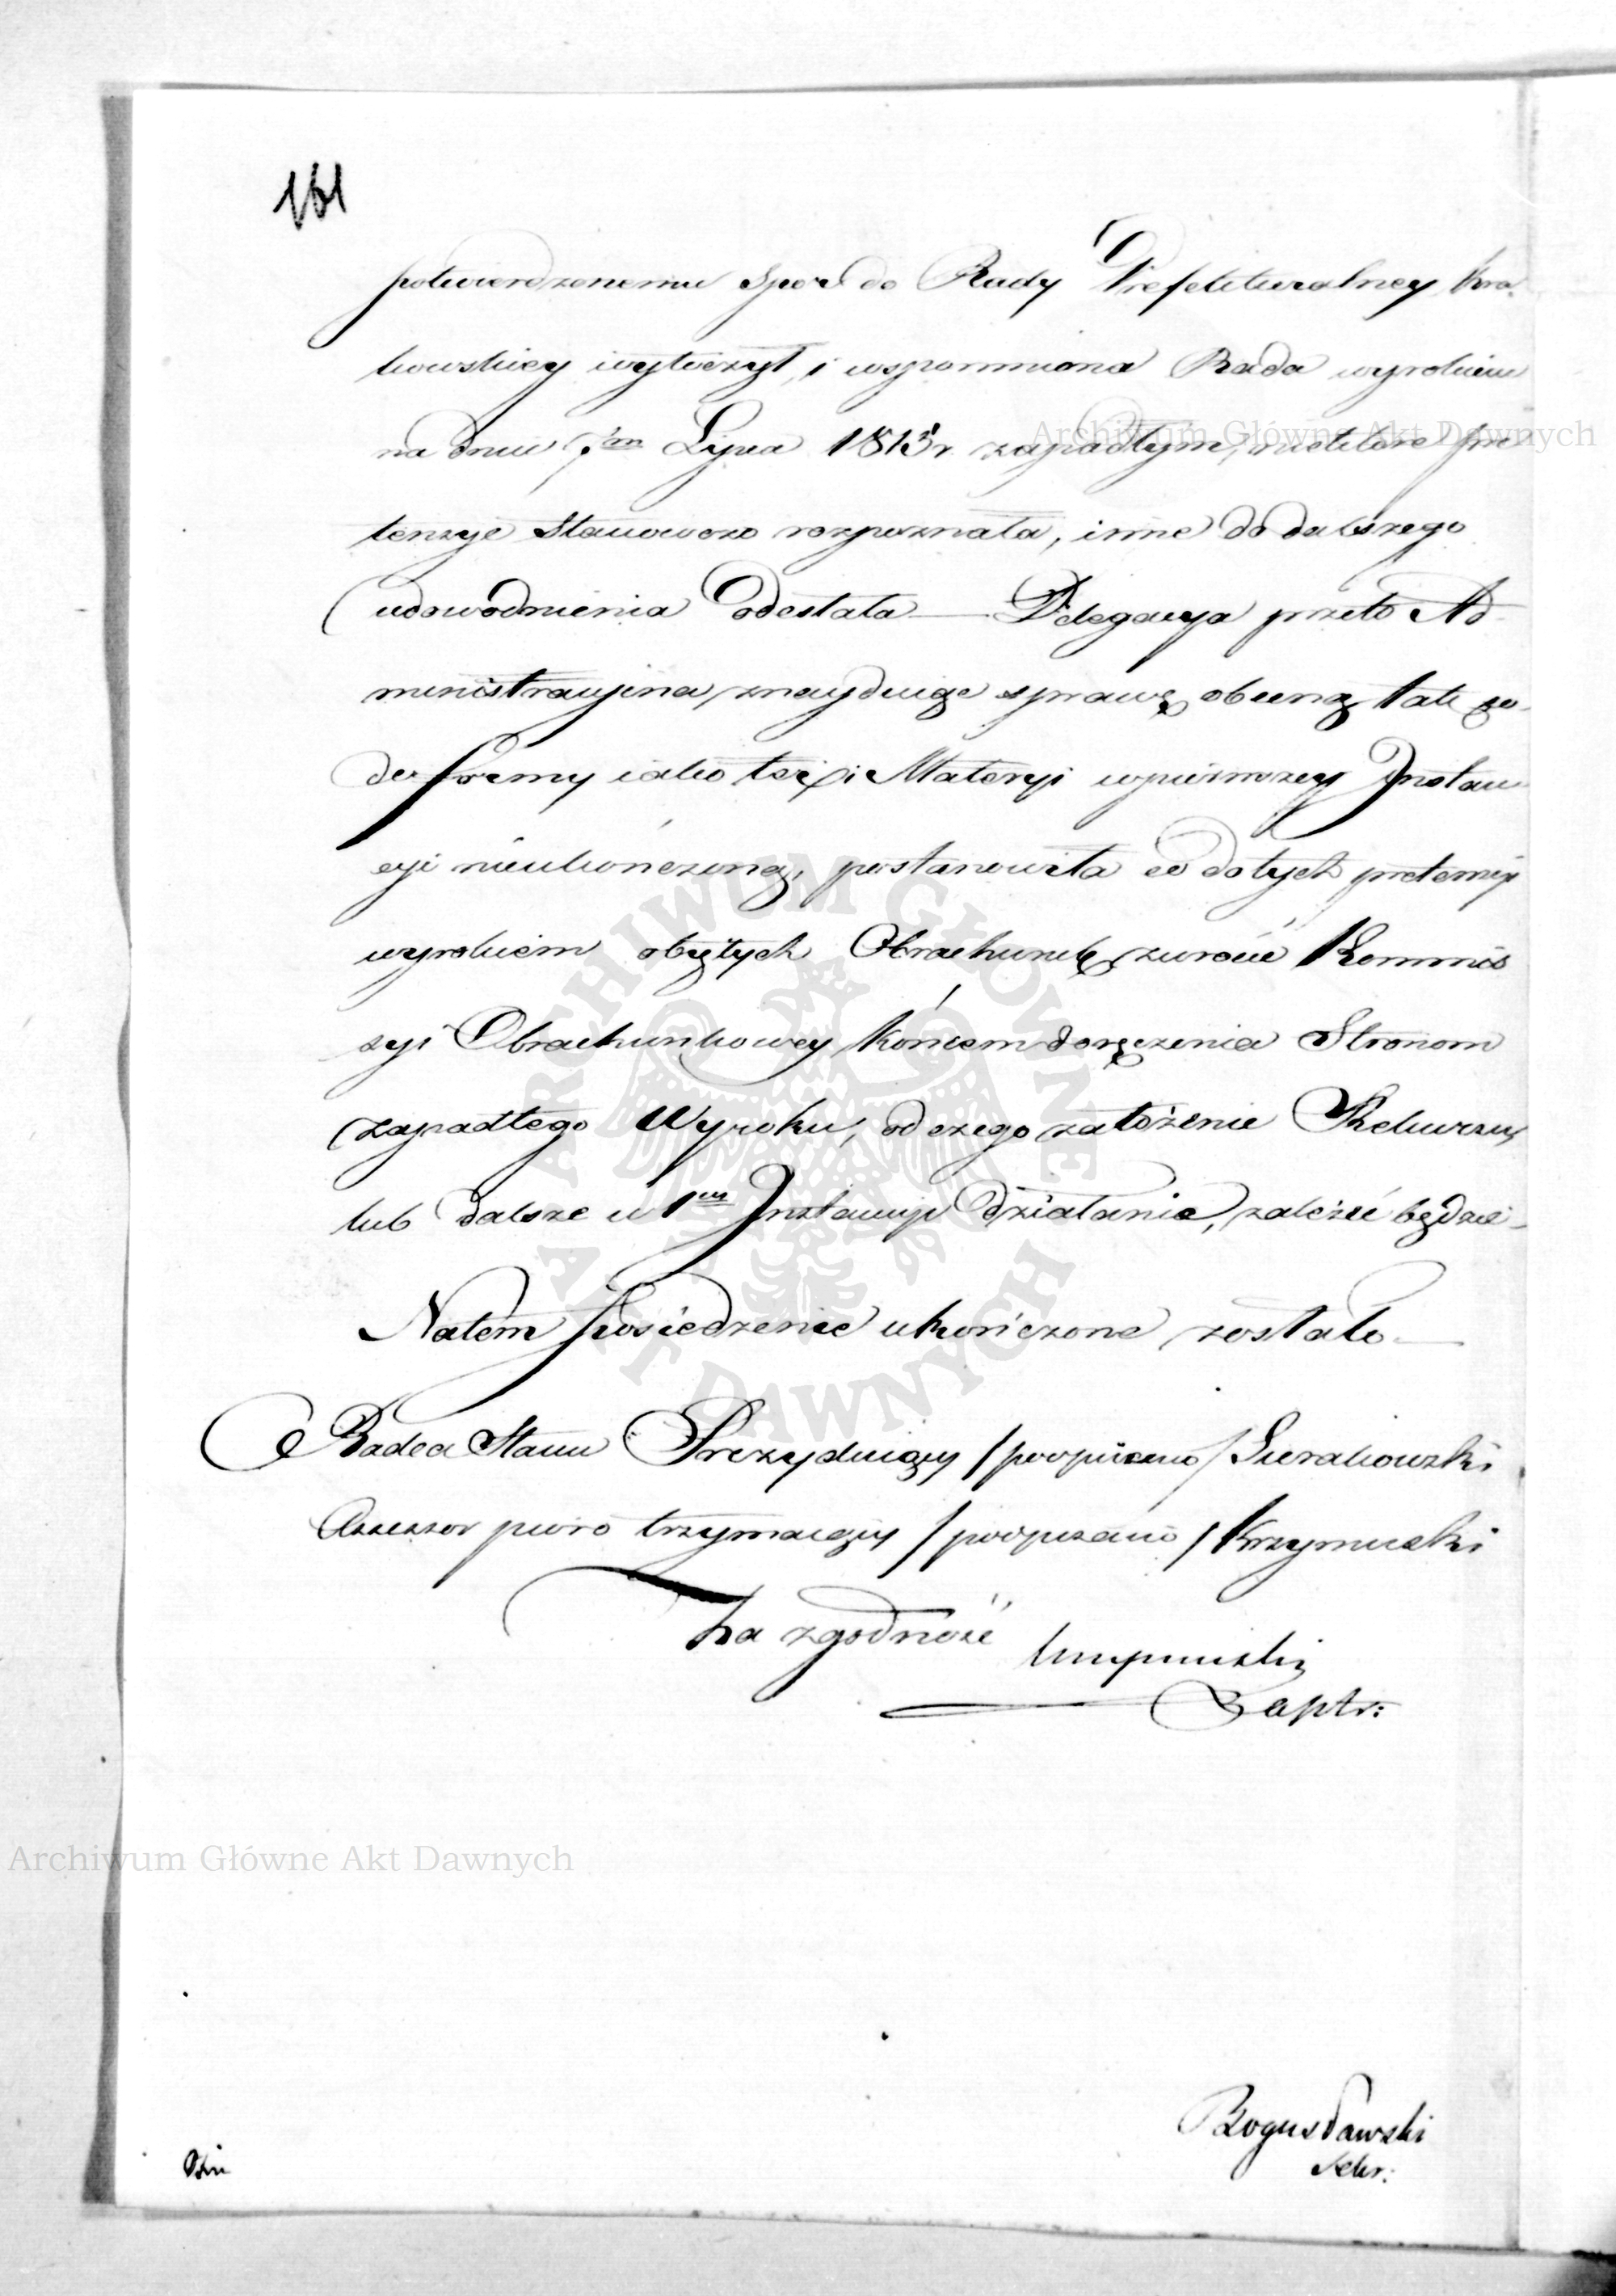 161
potwierdzonemu spór do Rady Prefekturalney Kra-
kowskiey wytoczył, i wspomniona Rada wyrokiem
na dniu 7ym Lipca 1813 r. zapadłym, niektóre pre
tensye stanowczo rozpoznała, inne do dalszego
udowodnienia odesłała — Delegacya przeto Ad-
ministracyina, znayduiąc sprawę obecną tak co
do formy iako też i Materyi w pierwszey Instan
cyi nieukończoną, postanowiła co do tych pretensyi
wyrokiem obiętych Obrachunek zwrócić Kommis
syi Obrachunkowey, końcem doręczenia Stronom
zapadłego Wyroku, od czego założenie Rekursu,
lub dalsze w 1ey Instancyi działanie, zależeć będzie —
Na tem posiedzenie ukończone zostało —
Radca Stanu Prezyduiący /podpisano/ Sierakowski
Assessor pioro trzymaiący /podpisano/ Krzymuski
Za zgodność
Archiwum Główne Akt Dawnych
Archiwum Główne Akt Dawnych
ARCHIWUM GŁÓWNE
AKT DAWNYCH
Bogusławski
Sekr: